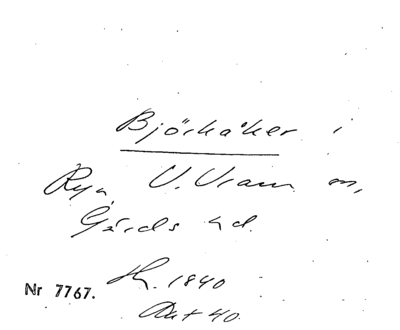 Björkåker i
Rya, V. Vram sn,
Gärds hd.
Hz. 1840
Nr 7767.
Akt 40